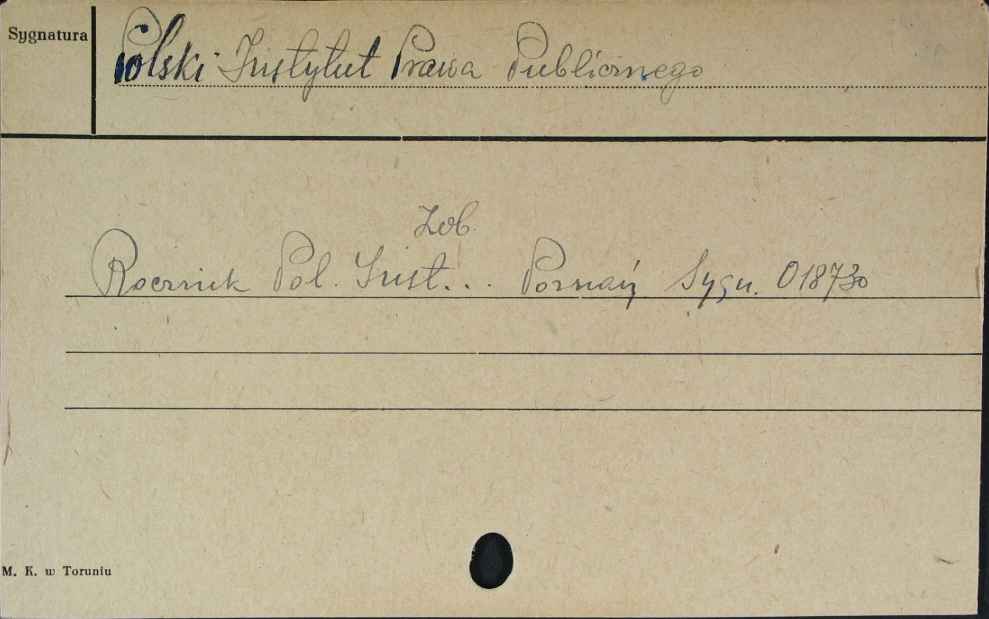 Sygnatura
Polski Instytut Prawa Publicznego
Zob.
Rocznik Pol. Inst... Poznań Sygn. 018730
M. K. w Toruniu